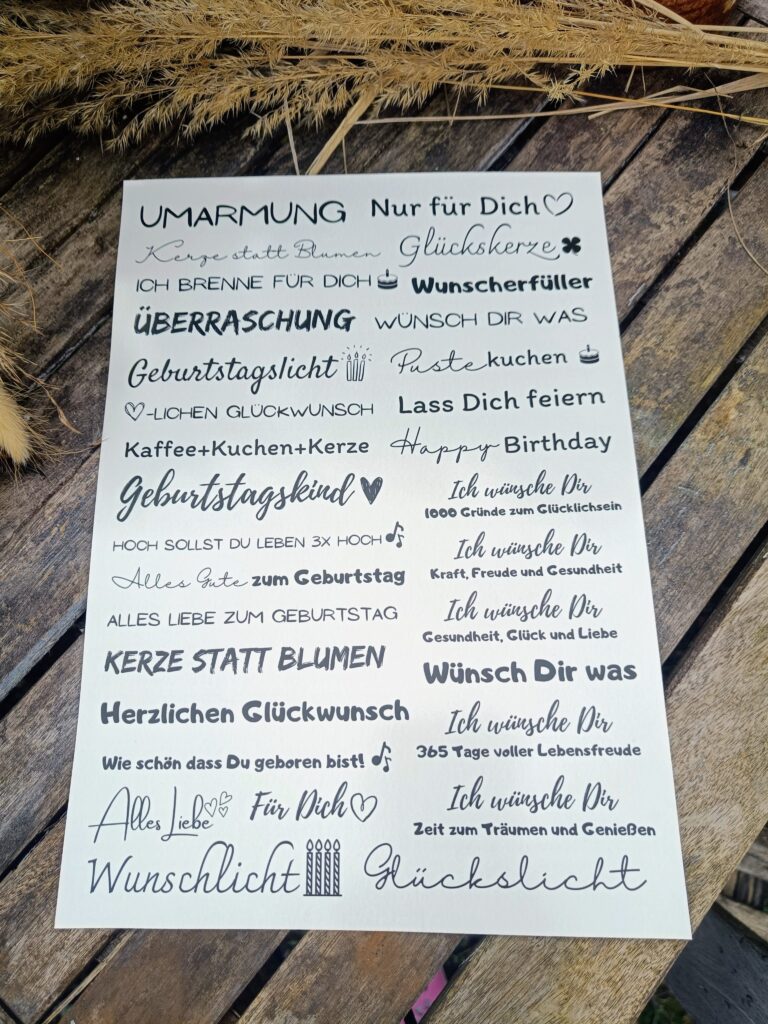 UMARMUNG
Nur für Dich
Kerze statt Blumen
Glückskerze
ICH BRENNE FÜR DICH
Wunscherfüller
ÜBERRASCHUNG
WÜNSCH DIR WAS
Geburtstagslicht
Pustekuchen
-LICHEN GLÜCKWUNSCH
Lass Dich feiern
Kaffee+Kuchen+Kerze
Happy Birthday
Geburtstagskind
Ich wünsche Dir
1000 Gründe zum Glücklichsein
HOCH SOLLST DU LEBEN 3X HOCH
Ich wünsche Dir
Kraft, Freude und Gesundheit
Alles Gute zum Geburtstag
Ich wünsche Dir
Gesundheit, Glück und Liebe
ALLES LIEBE ZUM GEBURTSTAG
KERZE STATT BLUMEN
Wünsch Dir was
Herzlichen Glückwunsch
Ich wünsche Dir
365 Tage voller Lebensfreude
Wie schön dass Du geboren bist!
Alles Liebe
Für Dich
Ich wünsche Dir
Zeit zum Träumen und Genießen
Wunschlicht
Glückslicht